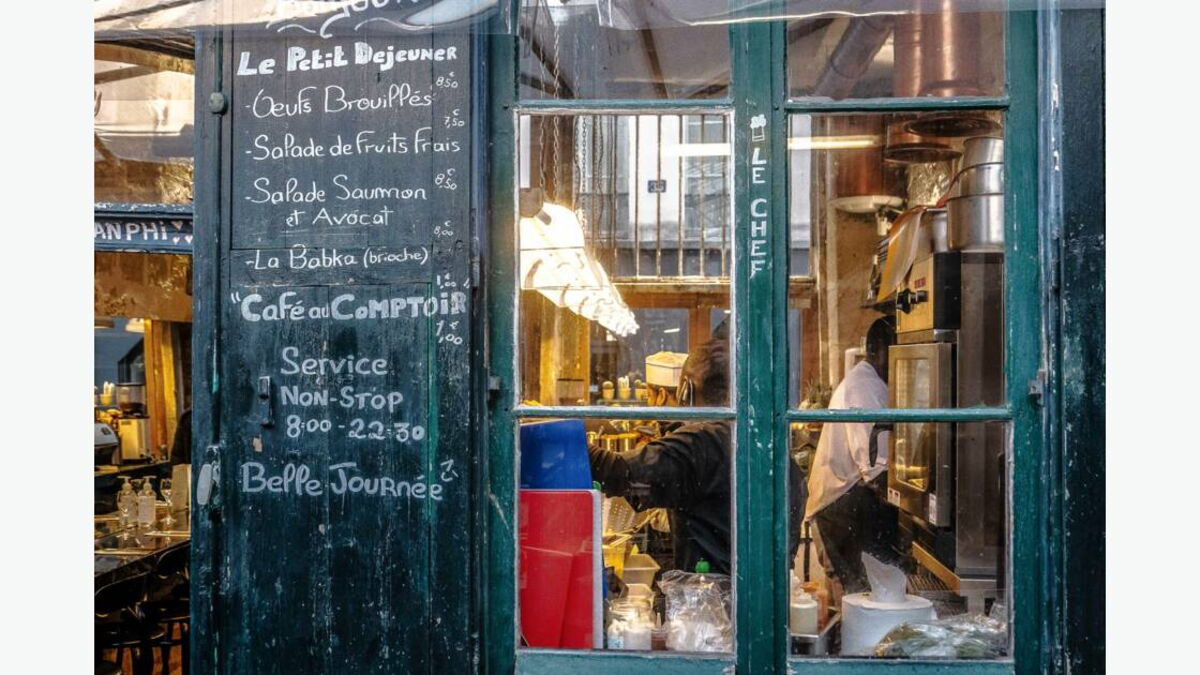 Le Petit Dejeuner
- Oeufs Brouillés 8,50 €
- Salade de Fruits Frais 7,50 €
- Salade Saumon 8,50 €
et Avocat
- La Babka (brioche) 8,00 €
"Café au Comptoir 1,00 €
Service
Non-Stop
8:00 - 22:30
Belle Journée
AN PHI
LE CHEF